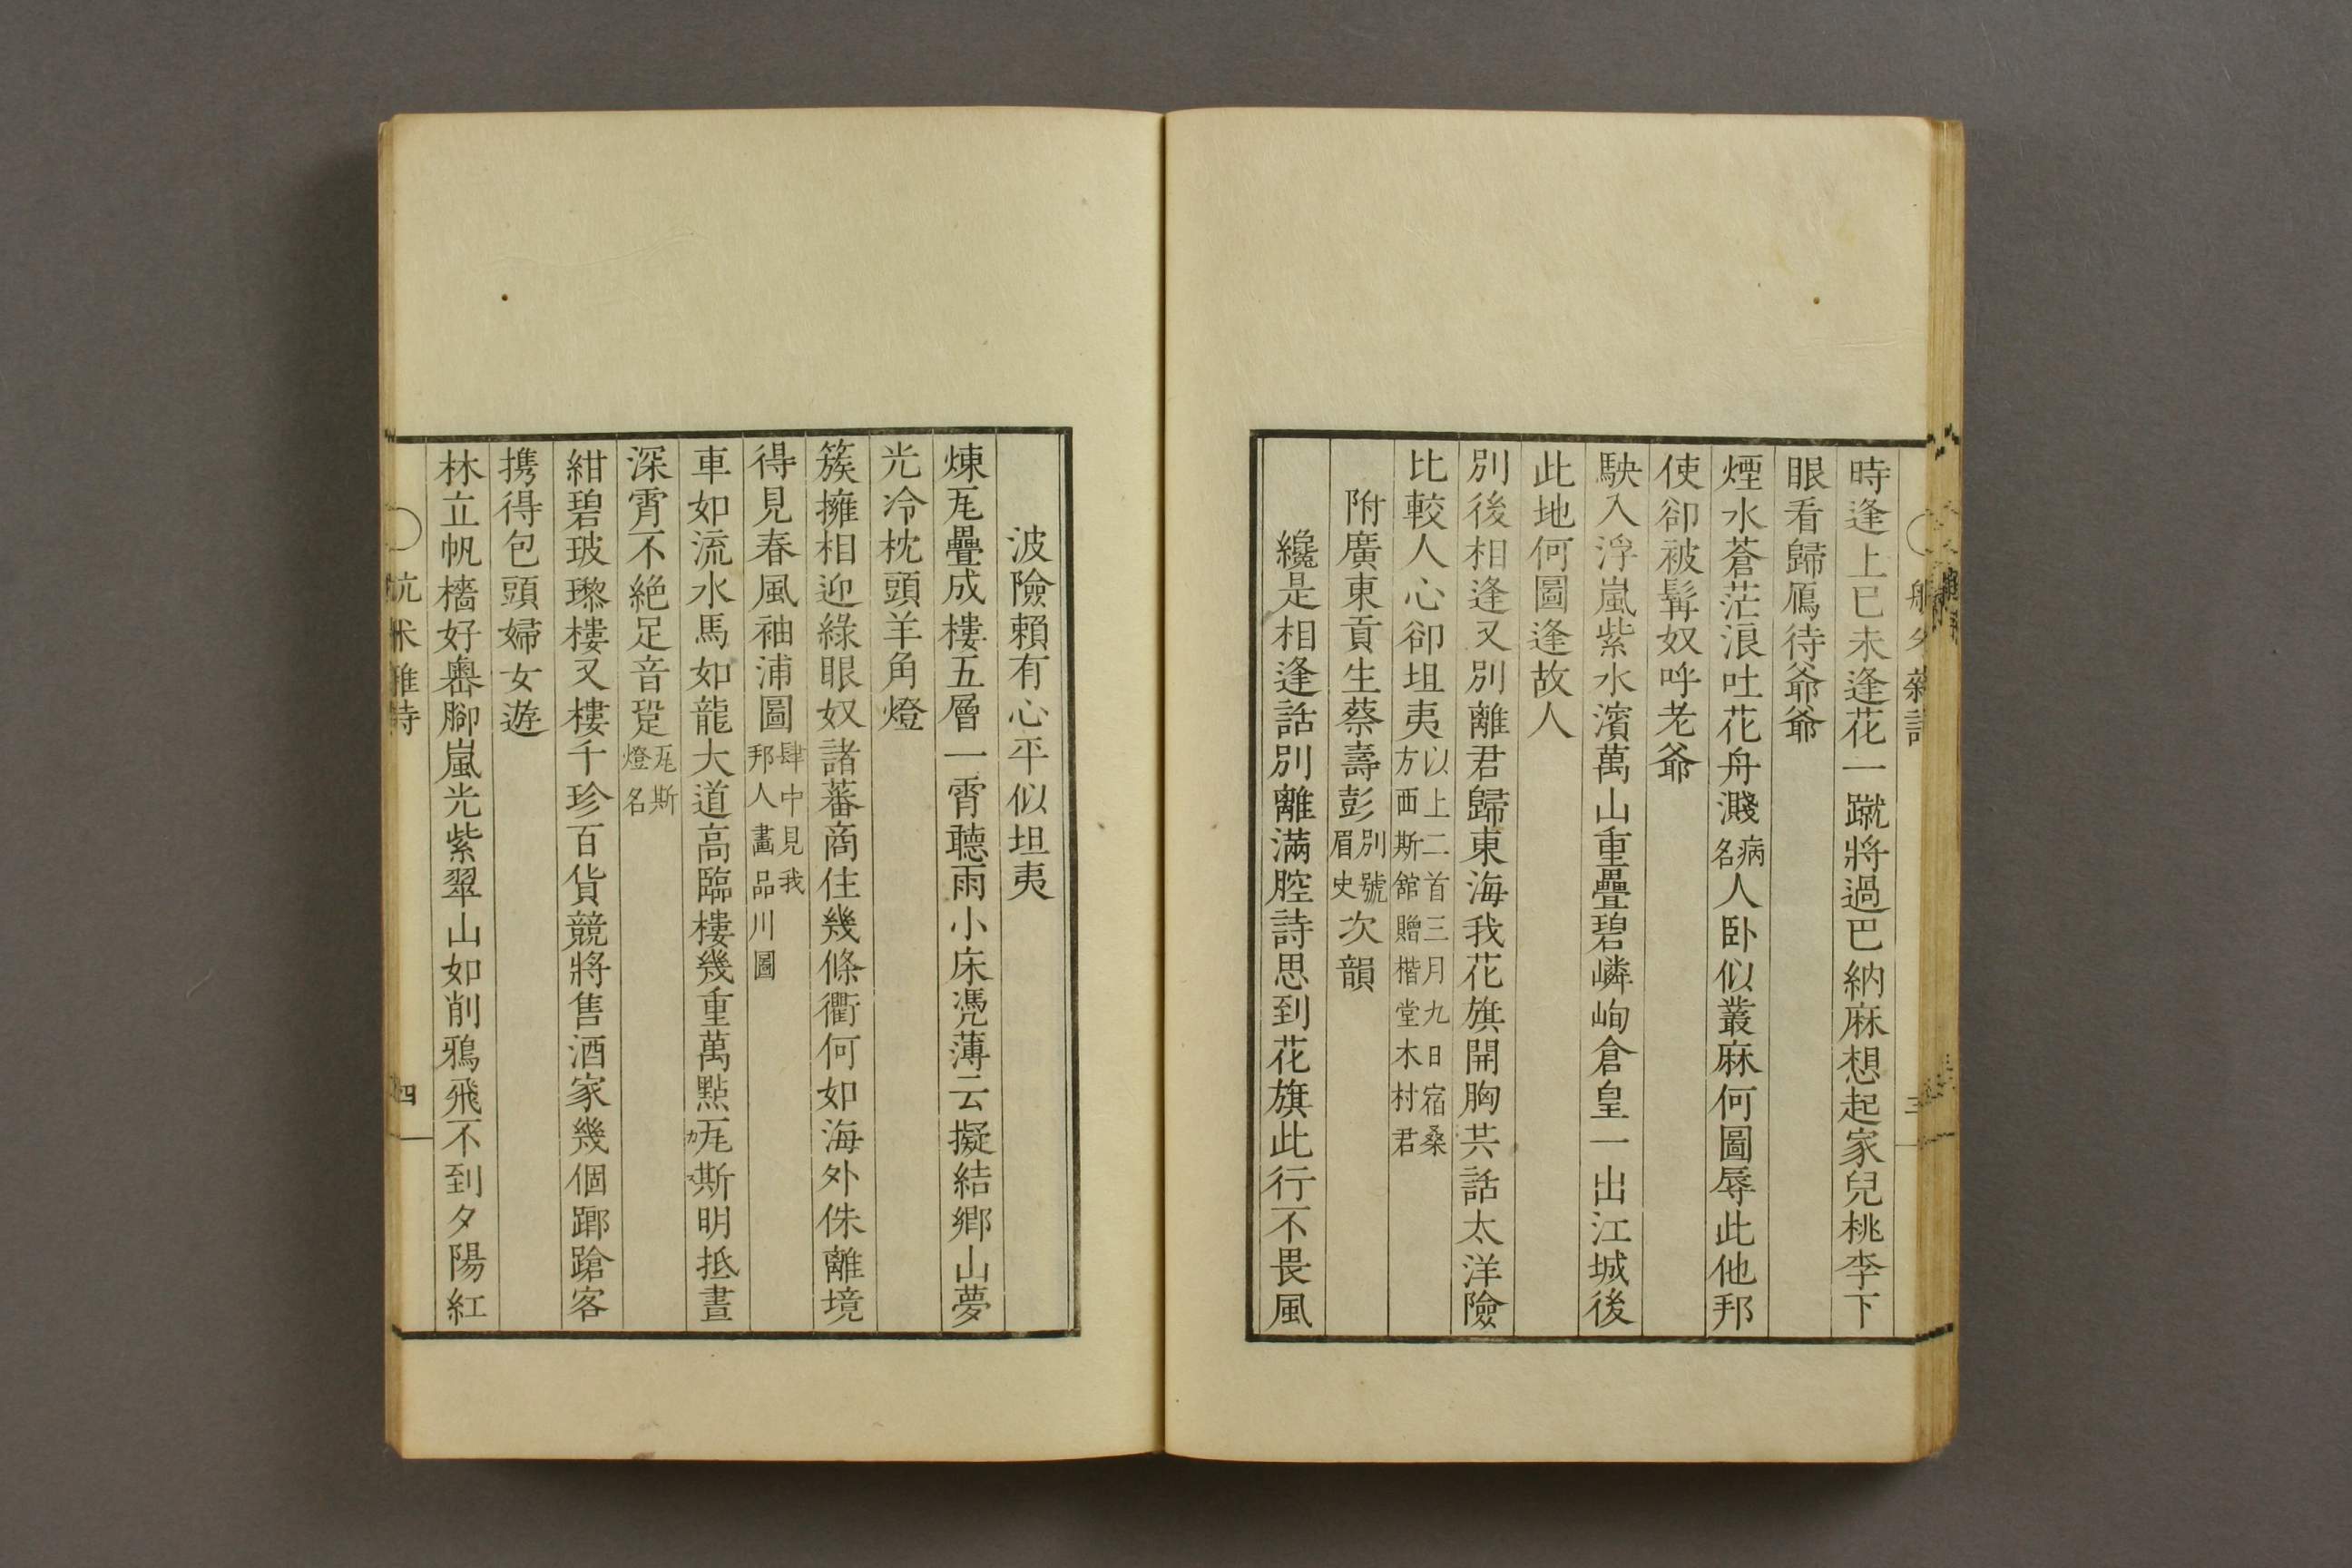 時逢上巳未逢花一蹴將過巴納麻想起家兒桃李下
眼看歸鴈待爺爺
煙水蒼茫浪吐花舟濺病名人卧似叢麻何圖辱此他邦
使卻被髯奴呼老爺
駛入浮嵐紫水濱萬山重疊碧嶙峋倉皇一出江城後
此地何圖逢故人
別後相逢又別離君歸東海我花旗開胸共話太洋險
比較人心卻坦夷以上二首三月九日宿桑方西斯舘贈楷堂木村君
附廣東貢生蔡壽彭別號眉史次韻
纔是相逢話別離滿腔詩思到花旗此行不畏風
波險賴有心平似坦夷
煉瓦疊成樓五層一霄聽雨小床凭薄云擬結鄉山夢
光冷枕頭羊角燈
簇擁相迎綠眼奴諸蕃商住幾條衢何如海外侏離境
得見春風袖浦圖肆中見我邦人畫品川圖
車如流水馬如龍大道高臨樓幾重萬點瓦斯明抵晝
深霄不絕足音跫瓦斯燈名
紺碧玻瓈樓又樓千珍百貨競將售酒家幾個踯蹌客
携得包頭婦女遊
林立帆檣好嶴腳嵐光紫翠山如削鴉飛不到夕陽紅
四